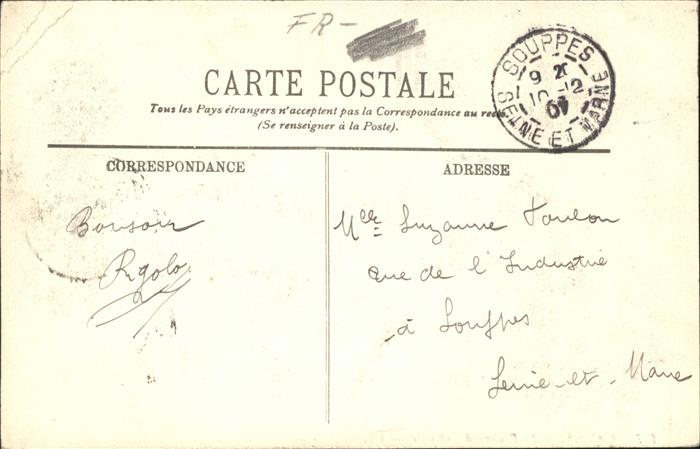 FR-
CARTE POSTALE
Tous les Pays étrangers n'acceptent pas la Correspondance au
(Se renseigner à la Poste).
SOUPPES
9
10-12
07
SEINE ET MARNE
CORRESPONDANCE
Bonsoir
Rigolo
ADRESSE
Mlle Suzanne Toulon
rue de l'Industrie
à Souppes
Seine-et-Marne